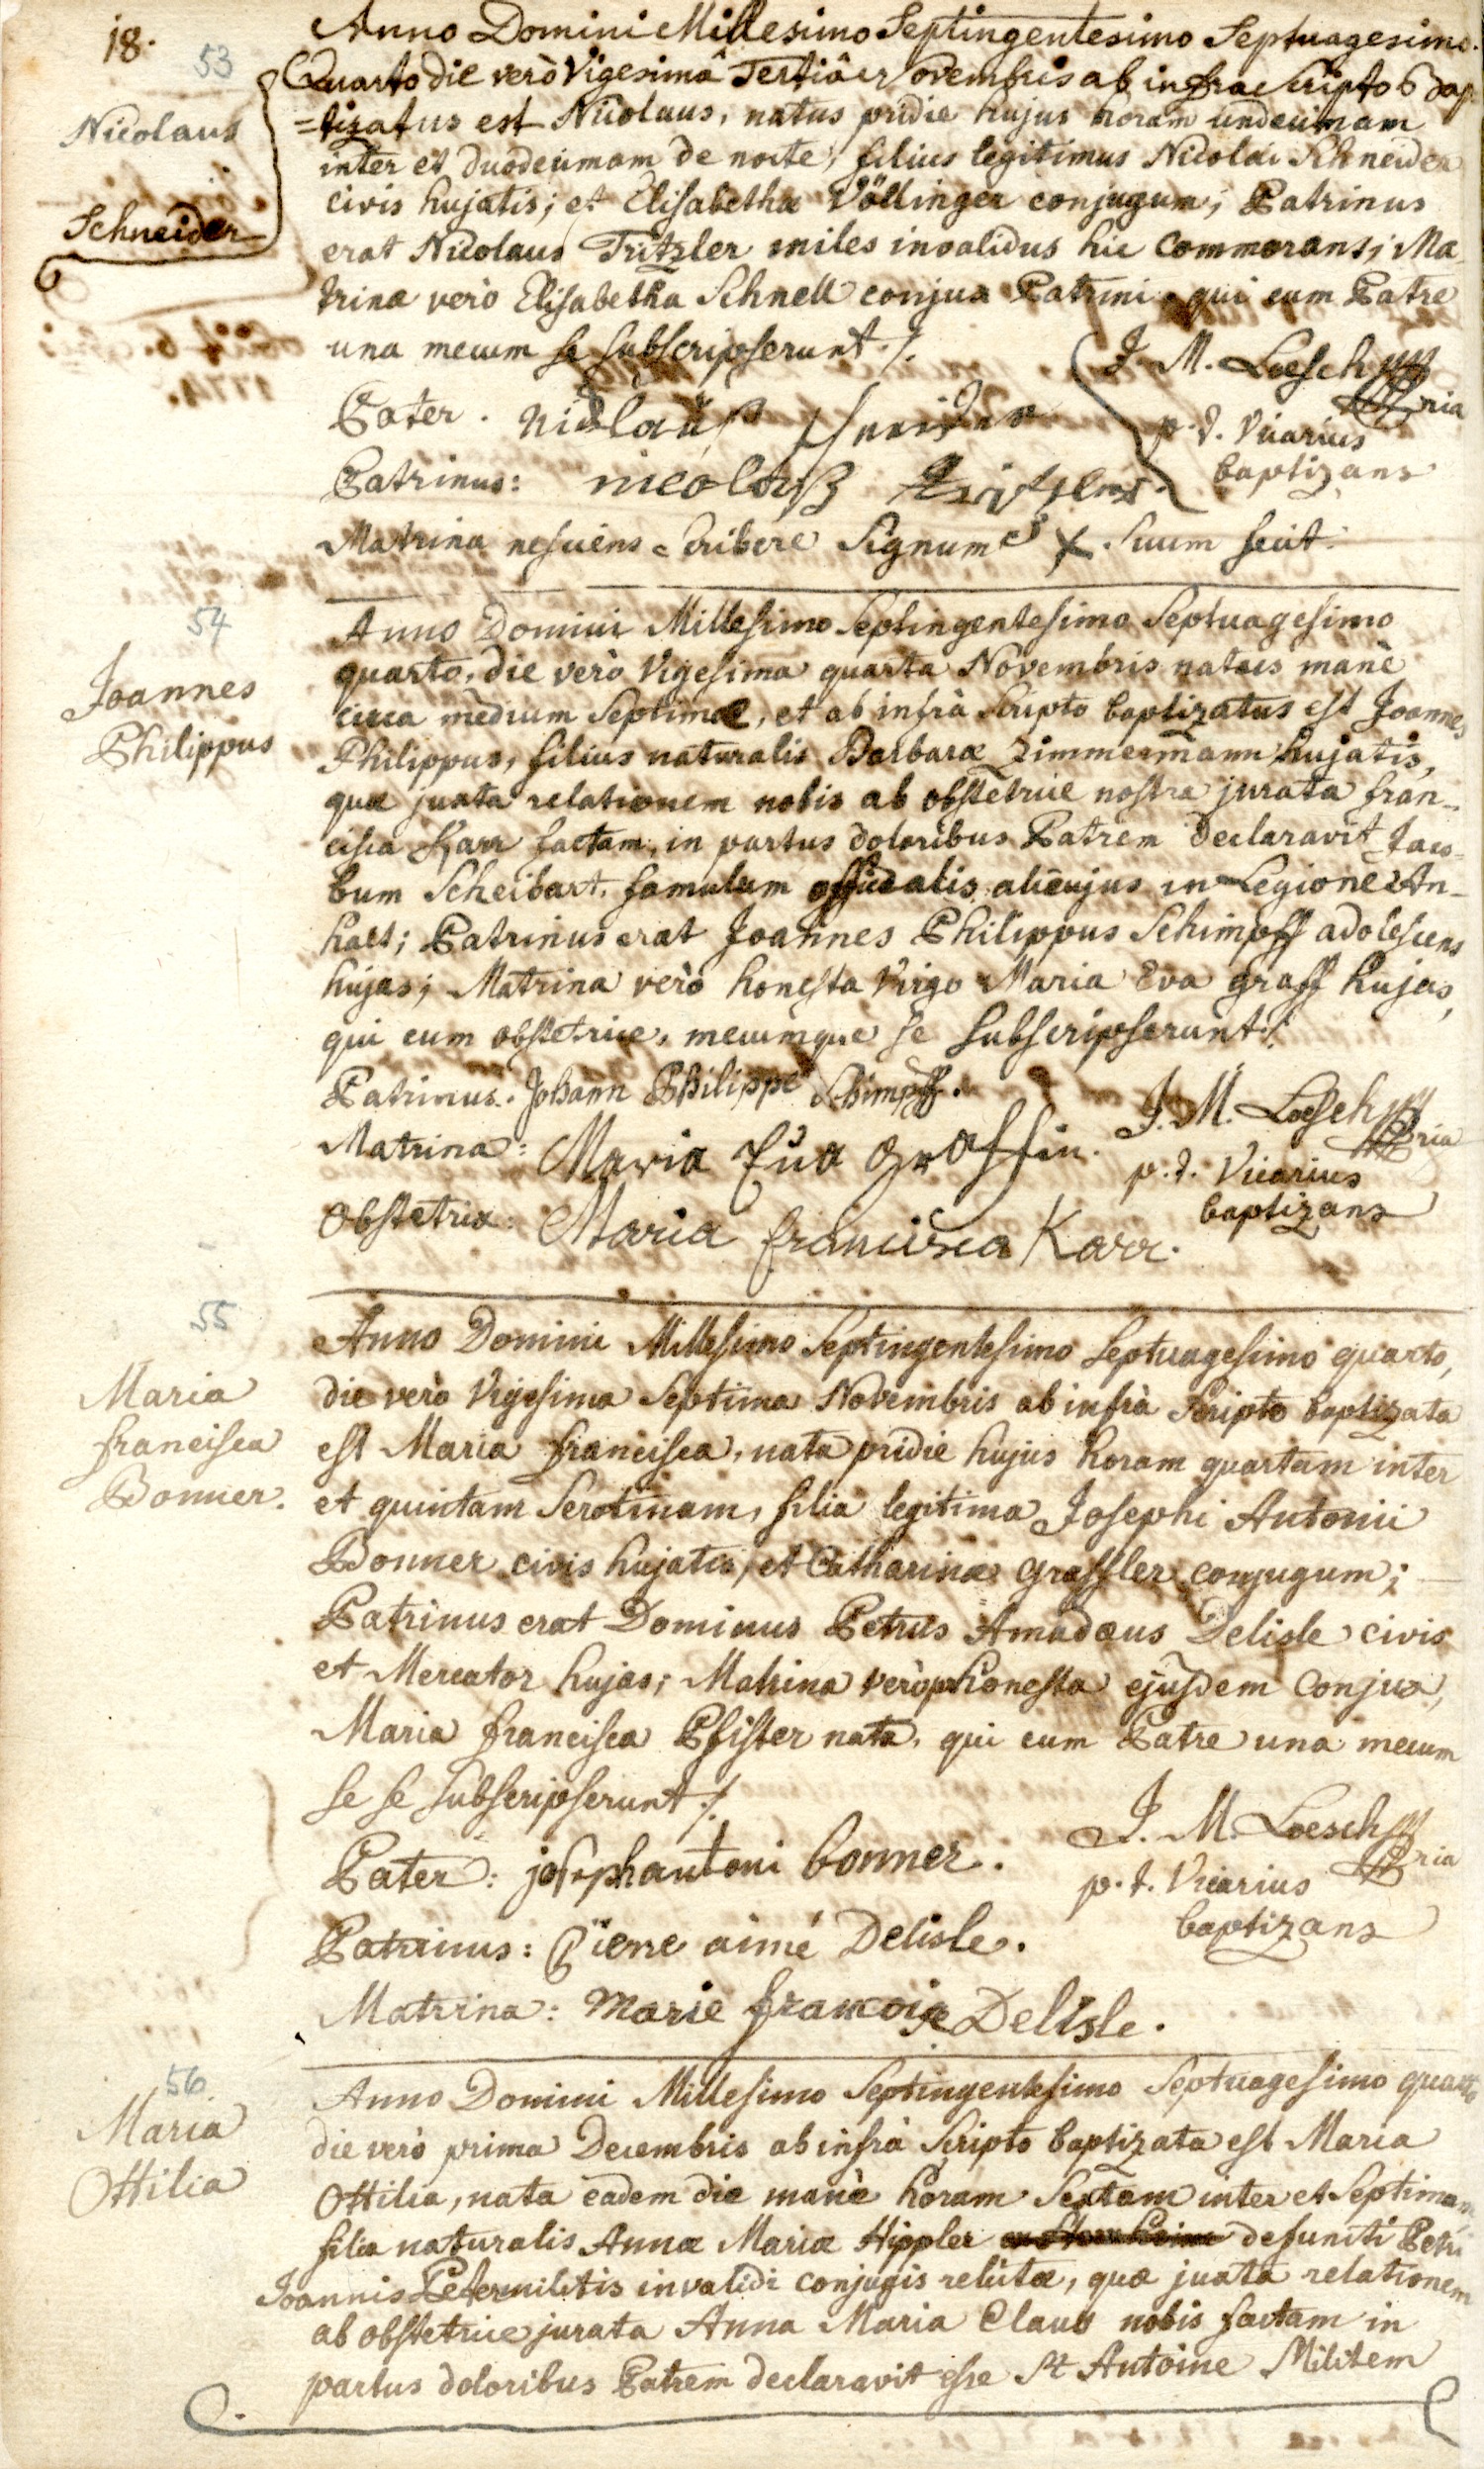 18.
53
Nicolaus
Schneider
Anno Domini Millesimo Septingentesimo Septuagesimo
Quarto die verò Vigesimâ Tertiâ Novembris ab infra scripto Bap
=tizatus est Nicolaus, natus pridie hujus horam undecimam
inter et duodecimam de nocte, filius legitimus Nicolai Schneider
civis hujatis; et Elisabethæ Völlinger conjugum; Patrinus
erat Nicolaus Tritzler miles invalidus hic commorans; Ma
trina verò Elisabetha Schnell conjux Patrini, qui cum Patre
una mecum se subscripserunt ./.
J. M. Loesch
p. t. Vicarius
baptizans
Pater. Nicolauß Schneider
Patrinus: nicolauß Tritzler
Matrina nesciens scribere Signum X suum fecit.
54
Joannes
Philippus
Anno Domini Millesimo Septingentesimo Septuagesimo
quarto, die verò Vigesima quarta Novembris natus manè
circa medium Septimæ, et ab infrà scripto baptizatus est Joannes
Philippus, filius naturalis Barbaræ Zimmermann hujatis,
quæ juxta relationem nobis ab obstetrice nostra jurata fran-
cisca Karr factam, in partus doloribus Patrem declaravit Jaco-
bum Scheibart, famulum officialis alicujus in Legione An-
halt; Patrinus erat Joannes Philippus Schimpff adolescens
hujas; Matrina verò honesta Virgo Maria Eva Graff hujas,
qui cum obstetrice, mecumque se subscripserunt ./.
Patrinus. Johann Philippe Schimpff.
J. M. Loesch
p. t. Vicarius
baptizans
Matrina: Maria Eva Graffin.
Obstetrix: Maria francisca Karr.
55
Maria
francisca
Bonner.
Anno Domini Millesimo Septingentesimo Septuagesimo quarto,
die verò Vigesima Septima Novembris ab infrà scripto baptizata
est Maria francisca, nata pridie hujus horam quartam inter
et quintam Serotinam, filia legitima Josephi Antonii
Bonner civis hujatis, et Catharinæ Graffler conjugum;
Patrinus erat Dominus Petrus Amadæus Delisle civis
et Mercator hujas; Matrina verò honesta ejusdem Conjux,
Maria francisca Pfister nata, qui cum Patre una mecum
se se subscripserunt ./.
J. M. Loesch
p. t. Vicarius
baptizans
Pater: josephantoni bonner.
Patrinus: Pierre aimé Delisle.
Matrina: Marie francoise Delisle.
56
Maria
Ottilia
Anno Domini Millesimo Septingentesimo Septuagesimo quarto
die verò prima Decembris ab infrà scripto baptizata est Maria
Ottilia, nata eâdem die manè horam Sextam inter et Septimam
filia naturalis Annæ Mariæ Hippler defuncti Petri
Joannis Peter militis invalidi conjugis relictæ, quæ juxta relationem
ab obstetrice jurata Anna Maria Claus nobis factam in
partus doloribus Patrem declaravit esse St Antoine Militem